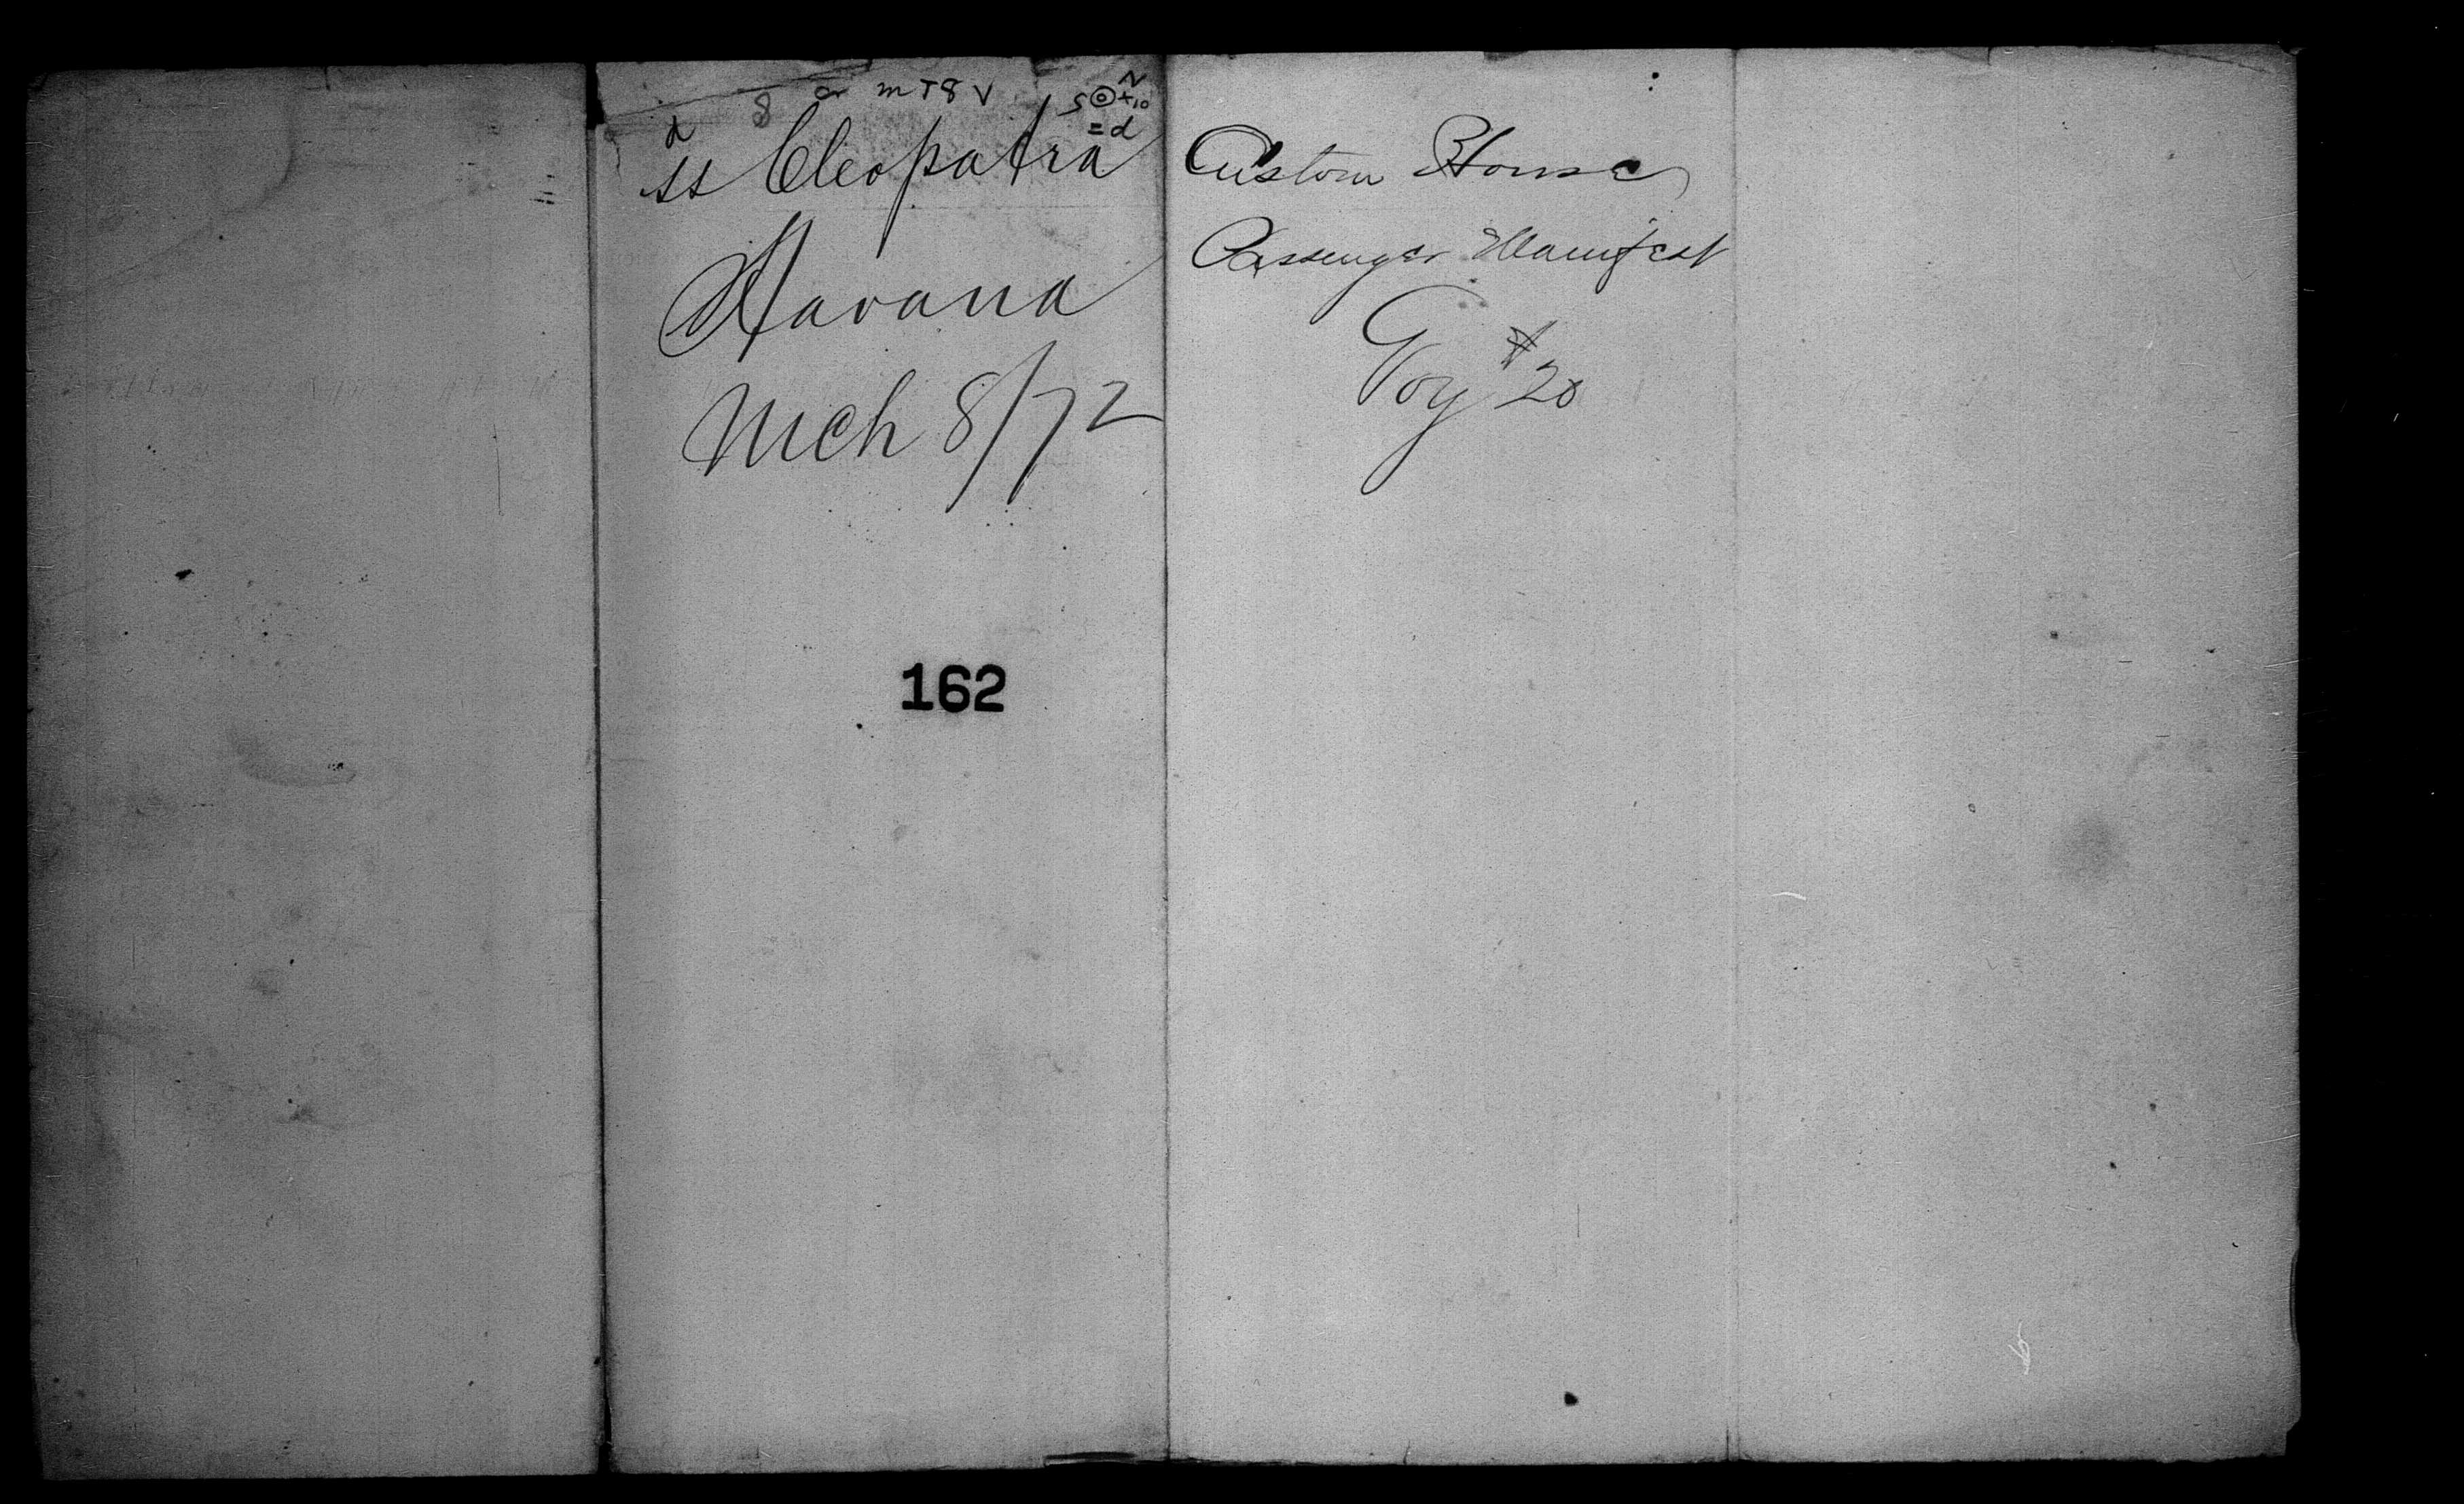 8 or m T 8 V
N
S ⊙ + 10
= d
d
ss Cleopatra
Havana
Mch 8/72
162
Custom House
Passenger Manifest
Voy #20